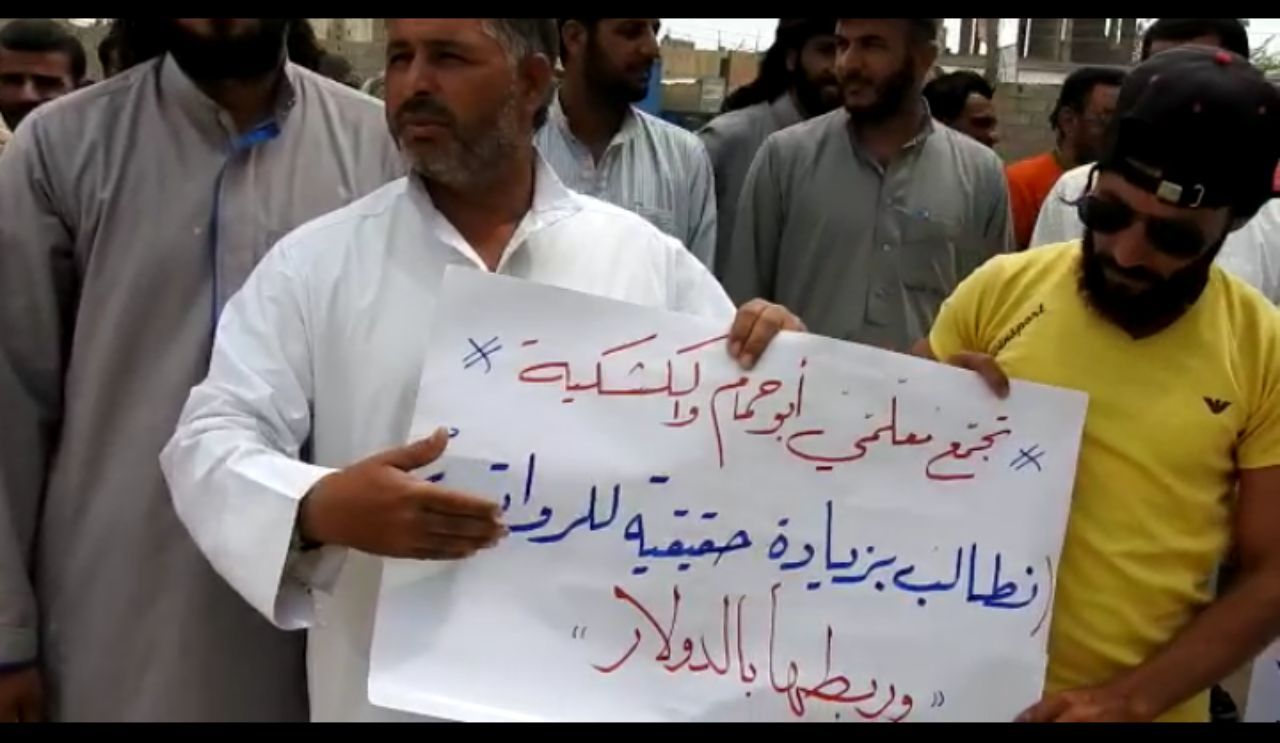 * تجمّع معلّمي أبو حمام والكشكية *
(نطالب بزيادة حقيقية للرواتب
"وربطها بالدولار"